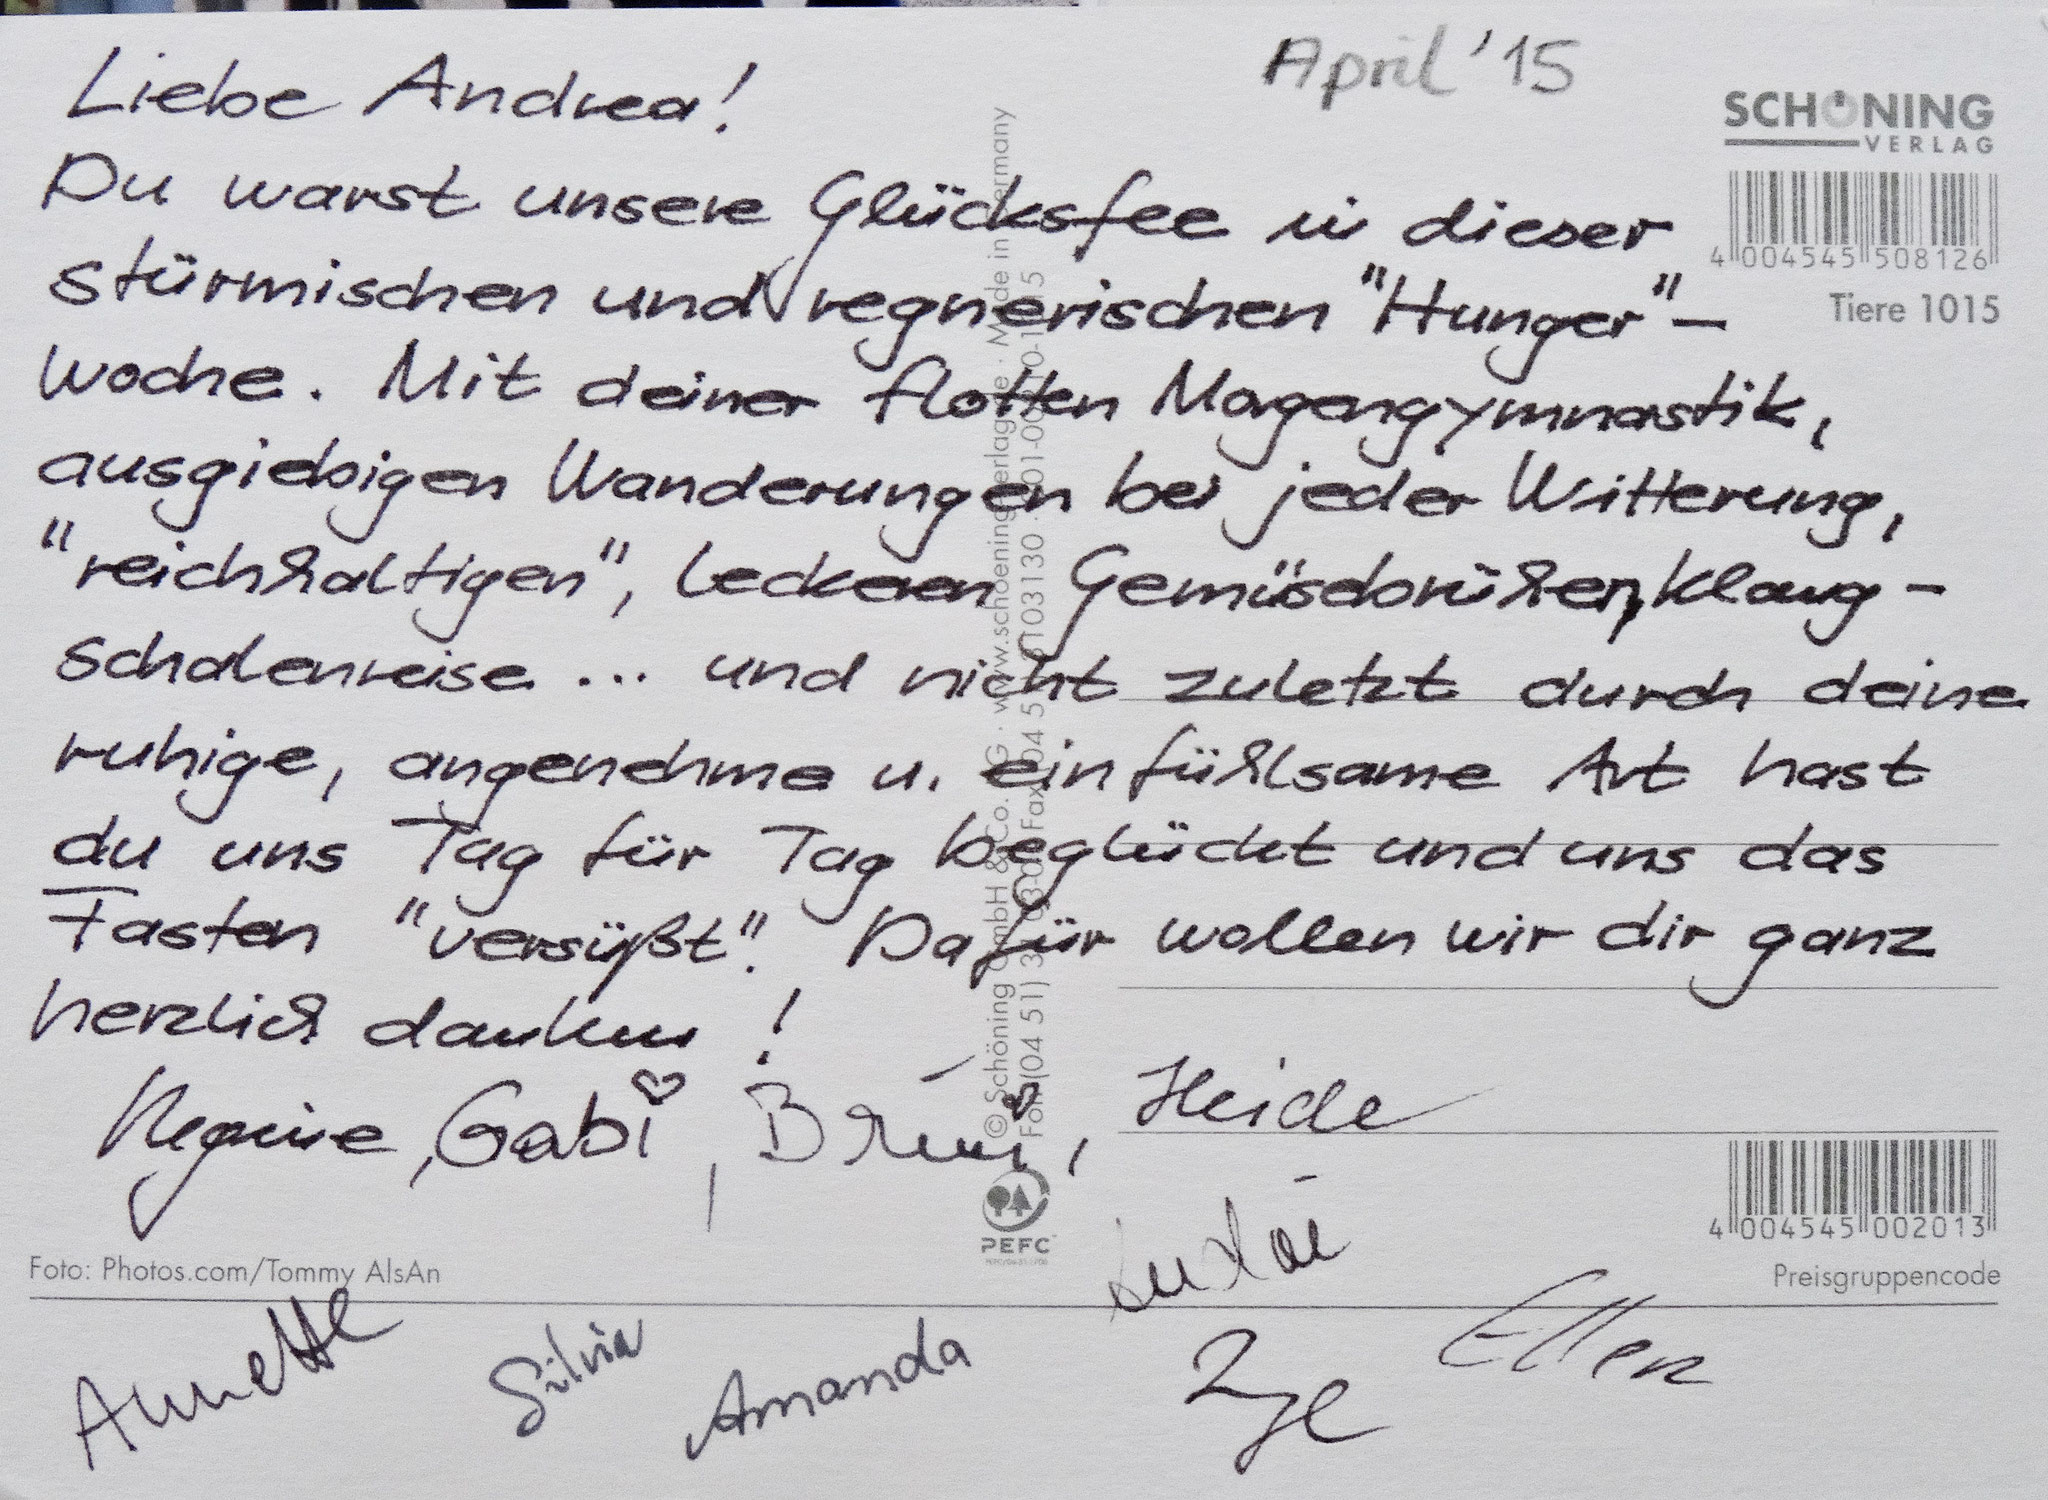 April '15
Liebe Andrea!
Du warst unsere Glücksfee in dieser
stürmischen und regnerischen "Hunger"-
woche. Mit deiner flotten Morgengymnastik,
ausgiebigen Wanderungen bei jeder Witterung,
"reichhaltigen", leckeren Gemüsebrühen, Klang-
schalenreise ... und nicht zuletzt durch deine
ruhige, angenehme u. einfühlsame Art hast
du uns Tag für Tag beglückt und uns das
Fasten "versüßt". Dafür wollen wir dir ganz
herzlich danken!
Regine, Gabi, Heide
Annette Silvia Amanda Ellen
SCHÖNING
VERLAG
4 004545 508126
Tiere 1015
© Schöning GmbH & Co. KG · www.schoening-verlag.de · Made in Germany
PEFC
4 004545 002013
Preisgruppencode
Foto: Photos.com/Tommy AlsAn